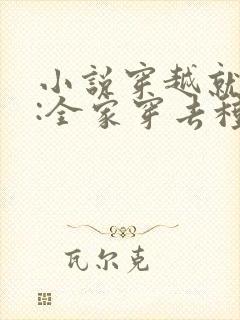 小说穿越就
:全家穿去种
瓦尔克